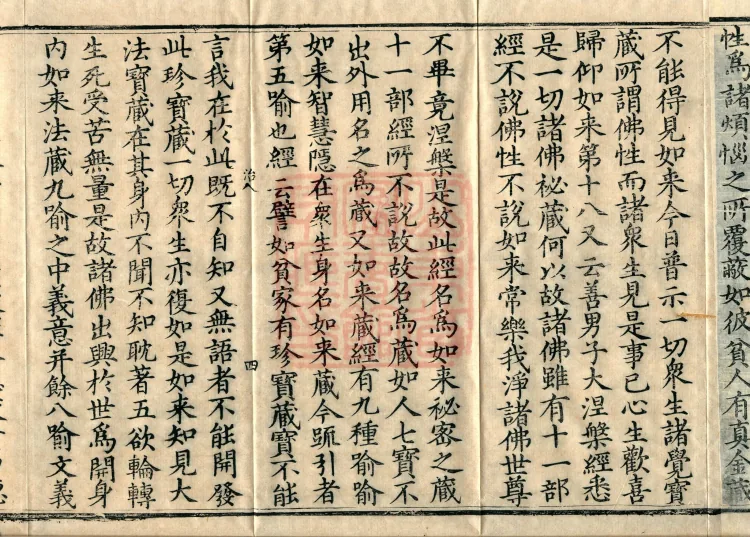 性為諸煩惱之所覆蔽如彼貧人有真金藏
不能得見如来今日普示一切衆生諸覺寶
藏所謂佛性而諸衆生見是事已心生歡喜
歸仰如来第十八又云善男子大涅槃經悉
是一切諸佛秘藏何以故諸佛雖有十一部
經不說佛性不說如来常樂我淨諸佛世尊
不畢竟涅槃是故此經名為如来秘密之藏
十一部經所不說故故名為藏如人七寶不
出外用名之為藏又如来藏經有九種喻喻
如来智慧隱在衆生身名如来藏今䟽引者
第五喻也經云譬如貧家有珍寶藏寶不能
言我在於此既不自知又無語者不能開發
治人
四
此珍寶藏一切衆生亦復如是如来知見大
法寶藏在其身內不聞不知耽著五欲輪轉
生死受苦無量是故諸佛出興於世為開身
內如来法藏九喻之中義意并餘八喻文義